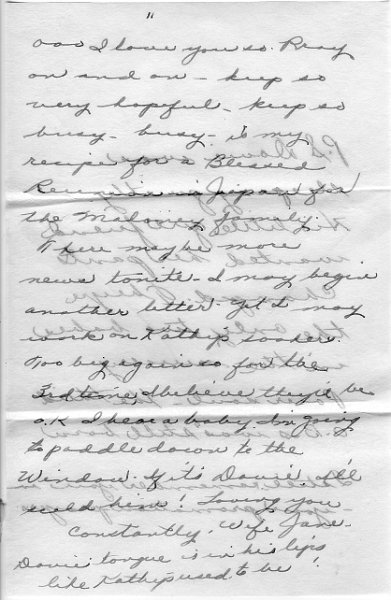 11
ooo I love you so. Pray
on and on - keep so
very hopeful - keep so
busy - busy - is my
recipe for a Blessed
Reunion in Japan for
the Midway family.
There may be more
news tonite - I may begin
another letter. Yet I may
work on Kathy's soaker.
Too big again so for the
3rd time, I believe they'd be
O.K. I hear a baby. I'm going
to paddle down to the
Window. If it's Davie I'll
scold him! Loving you
Constantly. Wife Jane.
Davie tongue is in his lips
like Kathy used to be!